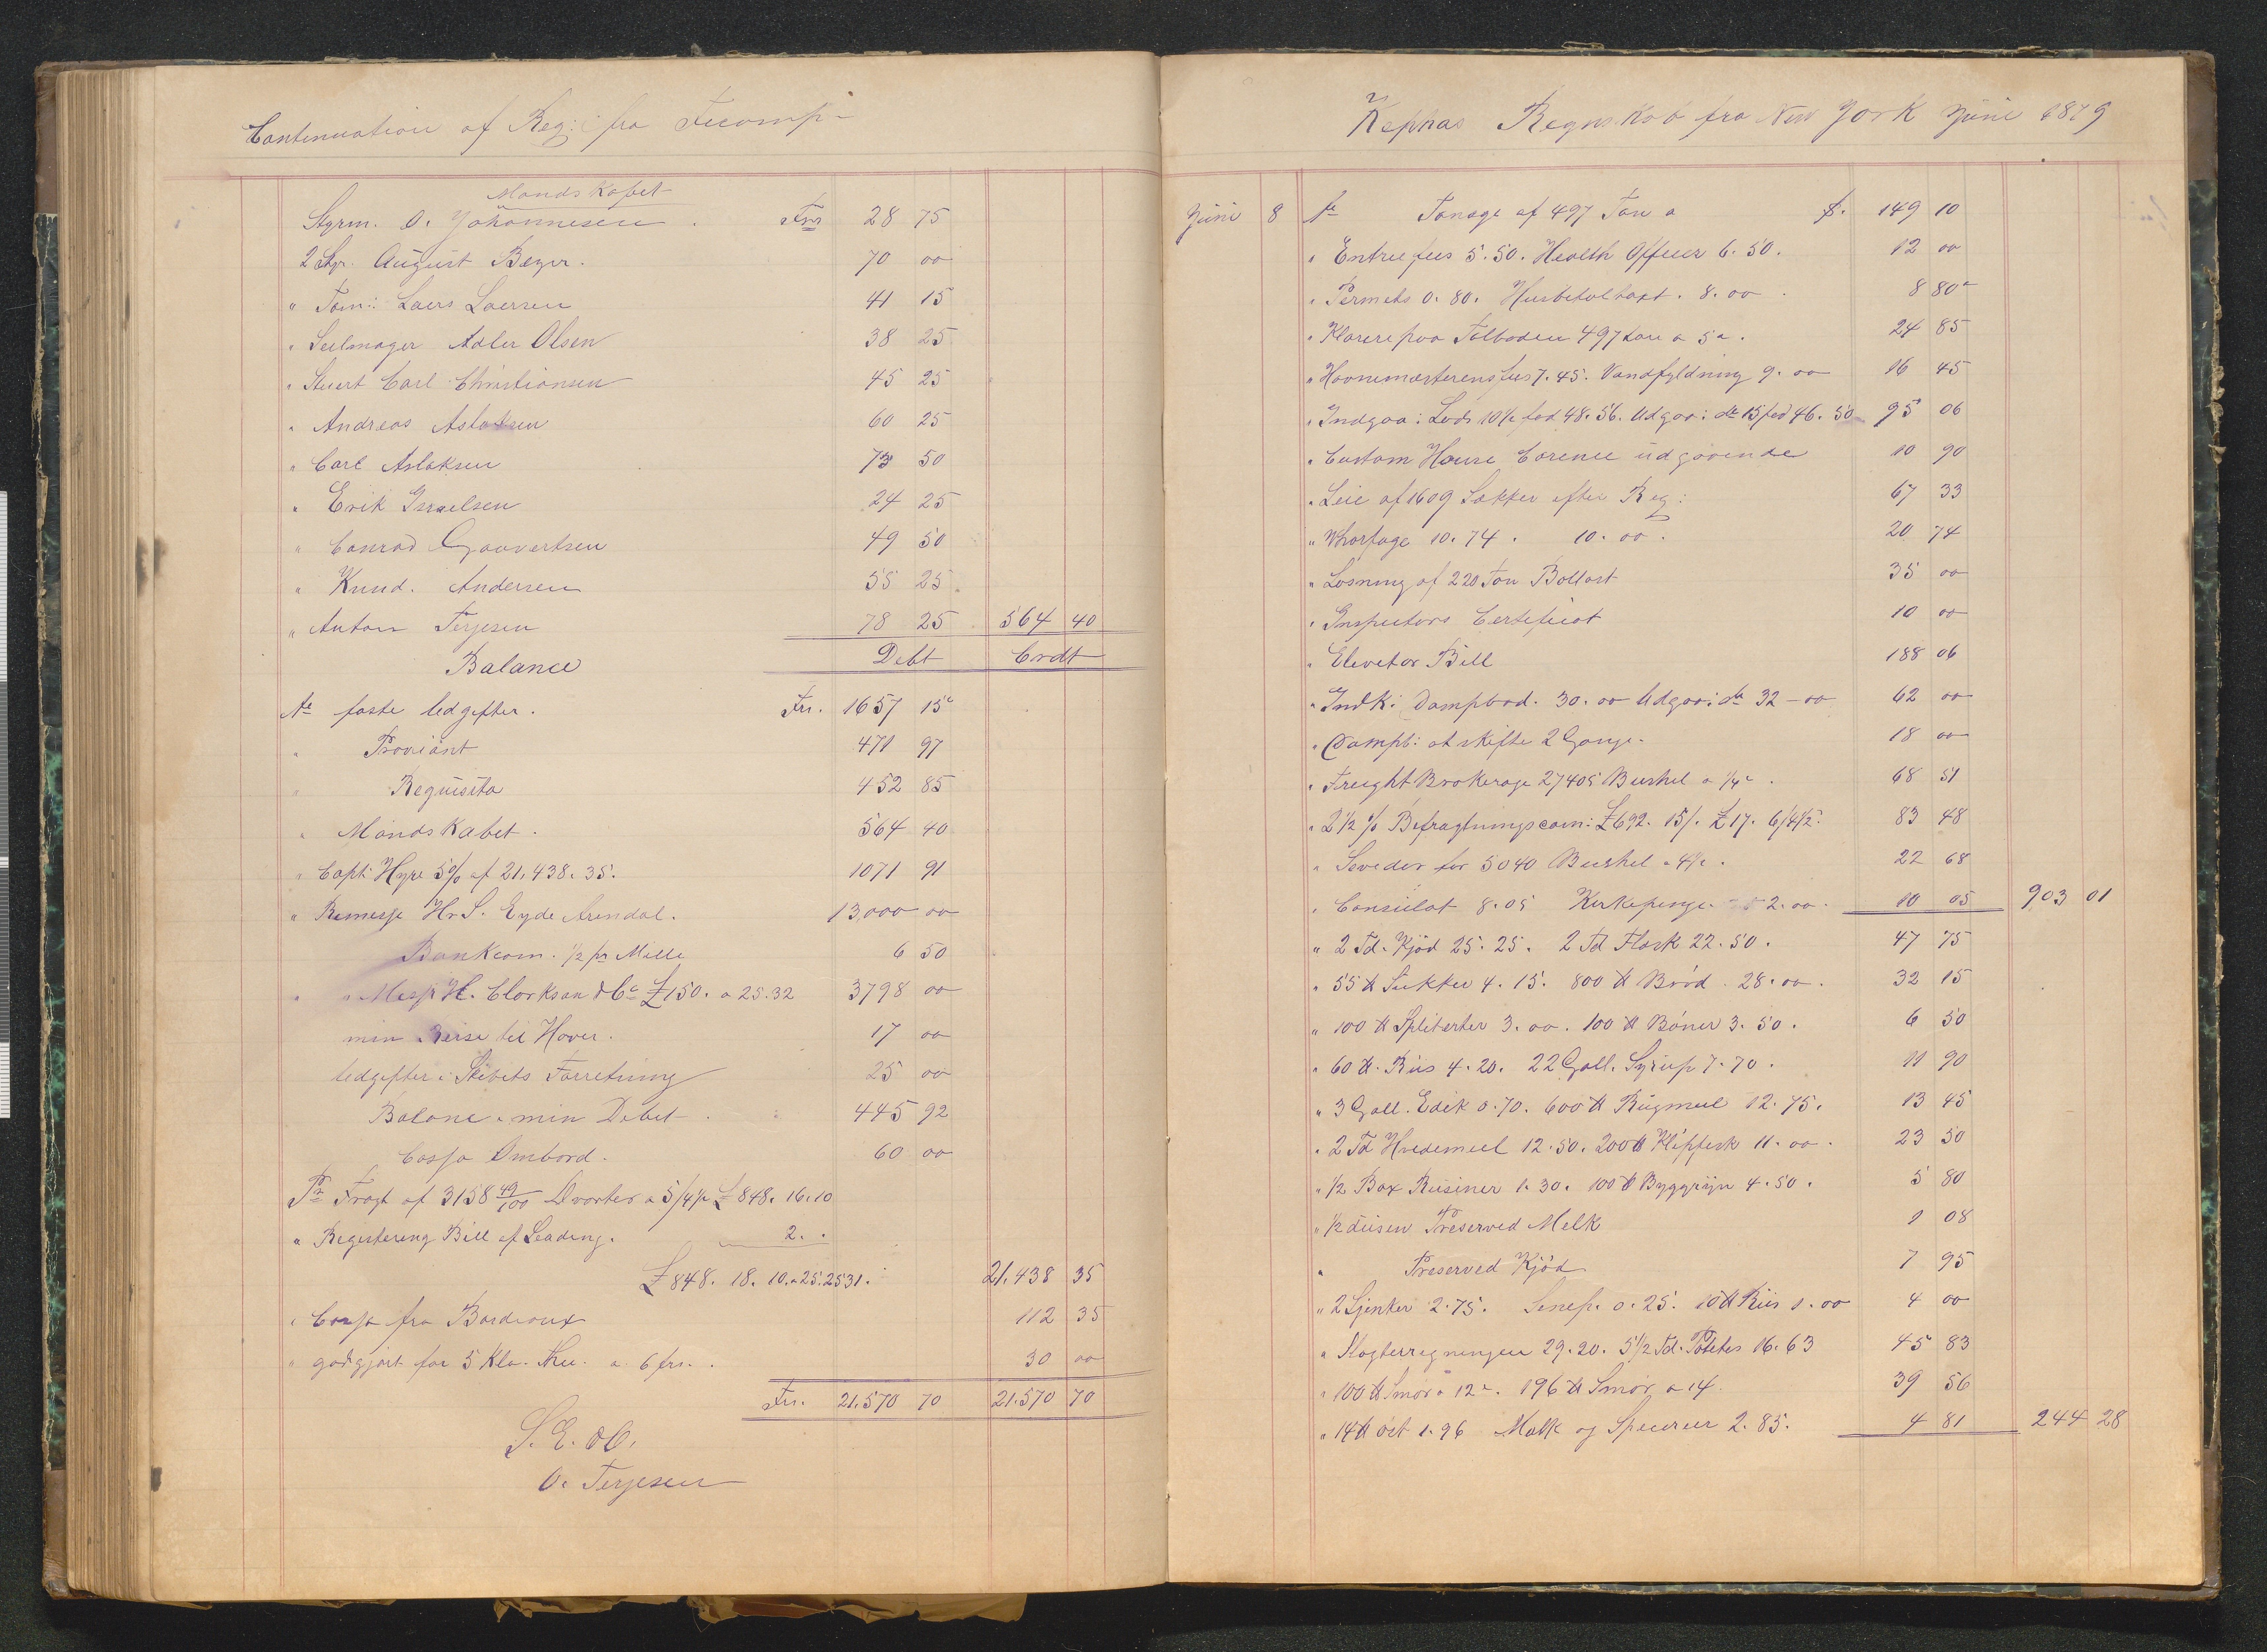 Continuation af Reg: fra Fecamp-
Mandskabet
Styrm. O. Johannesen . Frs 28 75
2 Styr. August Beyer. 70 00
" Tøm: Laers Laersen 41 15
" Seilmager Adler Olsen 38 25
" Stuert Carl Christiansen 45 25
" Andreas Aslaksen 60 25
" Carl Aslaksen 73 50
" Erik Israelsen 24 25
" Conrad Gauvertsen 49 50
" Knud. Andersen 55 25
" Anton Terjesen 78 25 564 40
Balance Debt Crdt
Ae faste Udgifter. Frs. 1657 15
" Proviant 471 97
" Requisita 452 85
" Mandskabet. 564 40
" Capt: Hyre 5% af 21,438. 35. 1071 91
" Remesse Hr S. Eyde Arendal. 13,000 00
Bankcom. 1/2 pr Mille 6 50
" " Mess H. Clarkson & Co £150. a 25.32 3798 00
min Reise til Havre. 17 00
Udgifter i Skibets Forretning 25 00
Balance min Debet . 445 92
Cassa Ombord. 60 00
Pr Fragt af 3158 49/100 Qvarter a 5/4 pr £ 848. 16. 10
" Registering Bill of Leading. 2. .
£ 848. 18. 10. a 25.2531. 21,438 35
" Cassa fra Bordeaux 112 35
" godgjort for 5 Klo. Thee. a. 6 frs. . 30 00
Frs. 21,570 70 21,570 70
S. E. &O.
O. Terjesen
Kephas Regnskab fra New York Juni 1879
Juni 8 Ae Tonage af 497 Ton a $. 149 10
" Entreefees 5.50. Health Officer 6.50. 12 00
" Permets 0.80. Hosbetaltaxt. 8.00 . 8 80
" Klarere paa Tolboden 497 ton a 5c. 24 85
" Havnemesterens fees 7.45. Vandfyldning 9.00 16 45
" Indgaa: Lods 10½ fod 48.56. Udgaa: do 15 fod 46.50 95 06
" Custom House Clarence udgaaende 10 90
" Leie af 1609 Sækker efter Reg: 67 33
" Wharfage 10.74 . 10.00. 20 74
" Losning af 220 Ton Ballast 35 00
" Inspectors Certificat 10 00
" Elevator Bill 188 06
" Indk: Dampbaad. 30.00 Udgaa: do 32-00 62 00
" Dampb: at skifte 2 Gange. 18 00
" Freight Brokerage 27405 Bushel a ¼c . 68 51
" 2½ % Befragtningscom: £692. 15/. £17. 6/4½. 83 48
" Stevedor for 5040 Bushel a 4½. 22 68
" Consulat 8.05 Kirkepenge 2.00. 10 05 903 01
" 2 Td. Kjød 25.25. 2 Td Flæsk 22.50. 47 75
" 55 ℔ Sukker 4.15. 800 ℔ Brød. 28.00. 32 15
" 100 ℔ Spliterter 3.00. 100 ℔ Bønner 3.50. 6 50
" 60 ℔. Riis 4.20. 22 Gall. Syrup 7.70. 11 90
" 3 Gall. Edik 0.70. 600 ℔ Rugmeel 12.75. 13 45
" 2 Td Hvedemeel 12.50. 200 ℔ Klipfisk 11.00. 23 50
" ½ Box Rusiner 1.30. 100 ℔ Byggryn 4.50. 5 80
" ½ dusen Preserved Melk 1 08
" Preserved Kjød 7 95
" 2 Skinker 2.75. Senep. 0.25. 10 ℔ Riis 1.00 4 00
" Slagterregningen 29.20. 5½ Td. Potetes 16.63 45 83
" 100 ℔ Smør a 12c. 196 ℔ Smør, a 14. 39 56
" 14 ℔ Ost 1.96 Malk og Specerier 2.85. 4 81 244 28